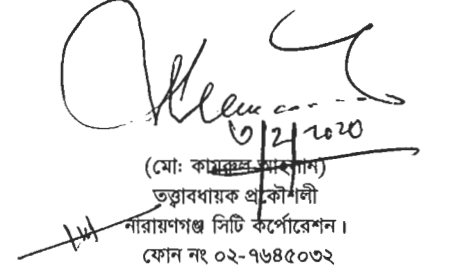 ৩/2/2020
(মো: কামরুল আহসান)
তত্ত্বাবধায়ক প্রকৌশলী
নারায়ণগঞ্জ সিটি কর্পোরেশন।
ফোন নং ০২-৭৬৪৫০৩২